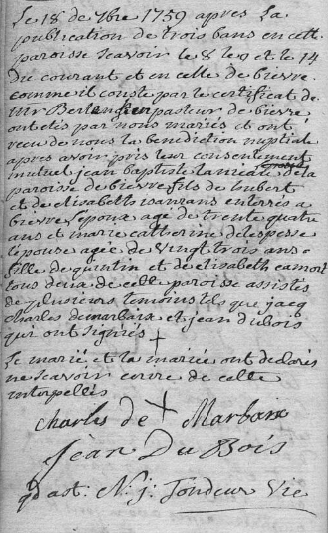 Le 18 de 7bre 1759 apres La
publication de trois bans en cette
paroisse scavoir le 8 le 9 et le 14
du courant et en celle de bievre
comme il conste par le certificat de
Mr pasteur de bievre
ont etés par nous mariés et ont
recu de nous la benediction nuptiale
apres avoir pris leur consentement
mutuel jean baptiste de la
paroisse de bievre fils de
et de elisabeth enterrés a
bievre l'epoux agé de trente quatre
ans et marie catherine delespesse
l'epouse agée de vingt trois ans
fille de quintin et de elisabeth
tous deux de celle paroisse assistés
de plusieurs temoins tels que jacq
charles demarbaix et jean dubois
qui ont signés
Le marié et la mariée ont declarés
ne scavoir ecrire de celle
interpellés
charles de Marbaix
jean Du Bois
qd ast. N: j: Tondeur Vic